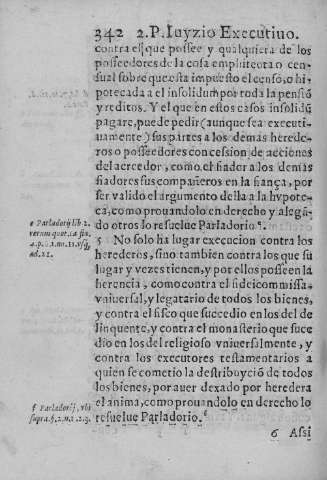 342 2.P. Iuyzio Executiuo.
contra el que possee y qualquiera de los
posseedores de la cosa emphiteota o cen-
sual sobre que esta impuesto el censo, o hi-
potecada a el insolidum por toda la pensiõ
y reditos. Y el que en estos casos insolidũ
pagare, puede pedir (aunque sea executi-
uamente) sus partes a los demas herede-
ros o posseedores con cession de acciones
del acreedor, como el fiador a los demas
fiadores sus compañeros en la fiança, por
ser valido el argumento della a la hypote-
ca, como prouandolo en derecho y alegã-
do otros lo resuelue Parladorio e.
e Parladorij lib. 2.
rerum quot. ca. fin.
a. p. 1. nu. 11. vsq;
ad. 22.
5 No solo ha lugar execucion contra los
herederos, sino tambien contra los que su
lugar y vezes tienen, y por ellos posseen la
herencia, como contra el fideicommissa-
vniuersal, y legatario de todos los bienes,
y contra el fisco que succedio en los del de
linquente, y contra el monasterio que suce
dio en los del religioso vniuersalmente, y
contra los executores testamentarios a
quien se cometio la destribuyciõ de todos
los bienes, por auer dexado por heredera
el anima, como prouandolo en derecho lo
resuelue Parladorio. f
f Parladorij, vbi
supra. §. 2. n. 1. 2. 9.
6 Assi